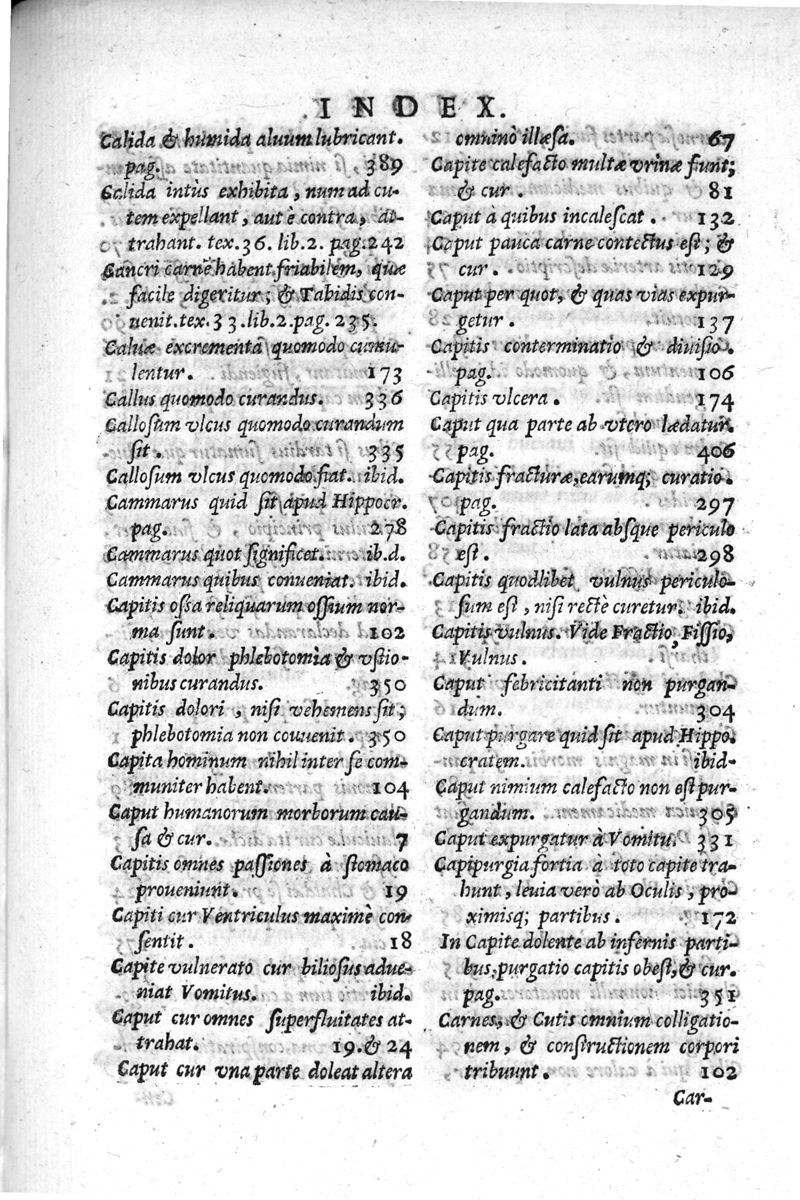 INDEX.
Calida & humida aluum lubricant.
pag. 389
Calida intus exhibita, num ad cu-
tem expellant, aut è contra, at-
trahant. tex. 36. lib. 2. pag. 242
Cancri carnē habent friabilem, quæ
facile digeritur; & Tabidis con-
uenit. tex. 33. lib. 2. pag. 235.
Caluæ excrementa quomodo cumu-
lentur. 173
Callus quomodo curandus. 336
Callosum vlcus quomodo curandum
sit. 335
Callosum vlcus quomodo fiat. ibid.
Cammarus quid sit apud Hippocr.
pag. 278
Cammarus quot significet. ib.d.
Cammarus quibus conueniat. ibid.
Capitis ossa reliquarum ossium nor-
ma sunt. 102
Capitis dolor phlebotomia & vstio-
nibus curandus. 350
Capitis dolori, nisi vehemens sit;
phlebotomia non conuenit. 350
Capita hominum nihil inter se com-
muniter habent. 104
Caput humanorum morborum cau-
sa & cur. 7
Capitis omnes passiones à stomaco
proueniunt. 19
Capiti cur Ventriculus maximè con-
sentit. 18
Capite vulnerato cur biliosus adue-
niat Vomitus. ibid.
Caput cur omnes superfluitates at-
trahat. 19. & 24
Caput cur vna parte doleat altera
omninò illæsa. 67
Capite calefacto multæ vrinæ fiunt;
& cur. 81
Caput à quibus incalescat. 132
Caput pauca carne contectus est; &
cur. 129
Caput per quot, & quas vias expur-
getur. 137
Capitis conterminatio & diuisio.
pag. 106
Capitis vlcera. 174
Caput qua parte ab vtero lædatur.
pag. 406
Capitis fracturæ, earumq; curatio.
pag. 297
Capitis fractio lata absque periculo
est. 298
Capitis quodlibet vulnus periculo-
sum est, nisi rectè curetur. ibid.
Capitis vulnus. Vide Fractio, Fissio,
Vulnus.
Caput febricitanti non purgan-
dum. 304
Caput purgare quid sit apud Hippo.
cratem. ibid-
Caput nimium calefacto non est pur-
gandum. 305
Caput expurgatur à Vomitu. 331
Capipurgia fortia à toto capite tra-
hunt, leuia verò ab Oculis, pro-
ximisq; partibus. 172
In Capite dolente ab infernis parti-
bus, purgatio capitis obest, & cur.
pag. 351
Carnes, & Cutis omnium colligatio-
nem, & constructionem corpori
tribuunt. 102
Car-